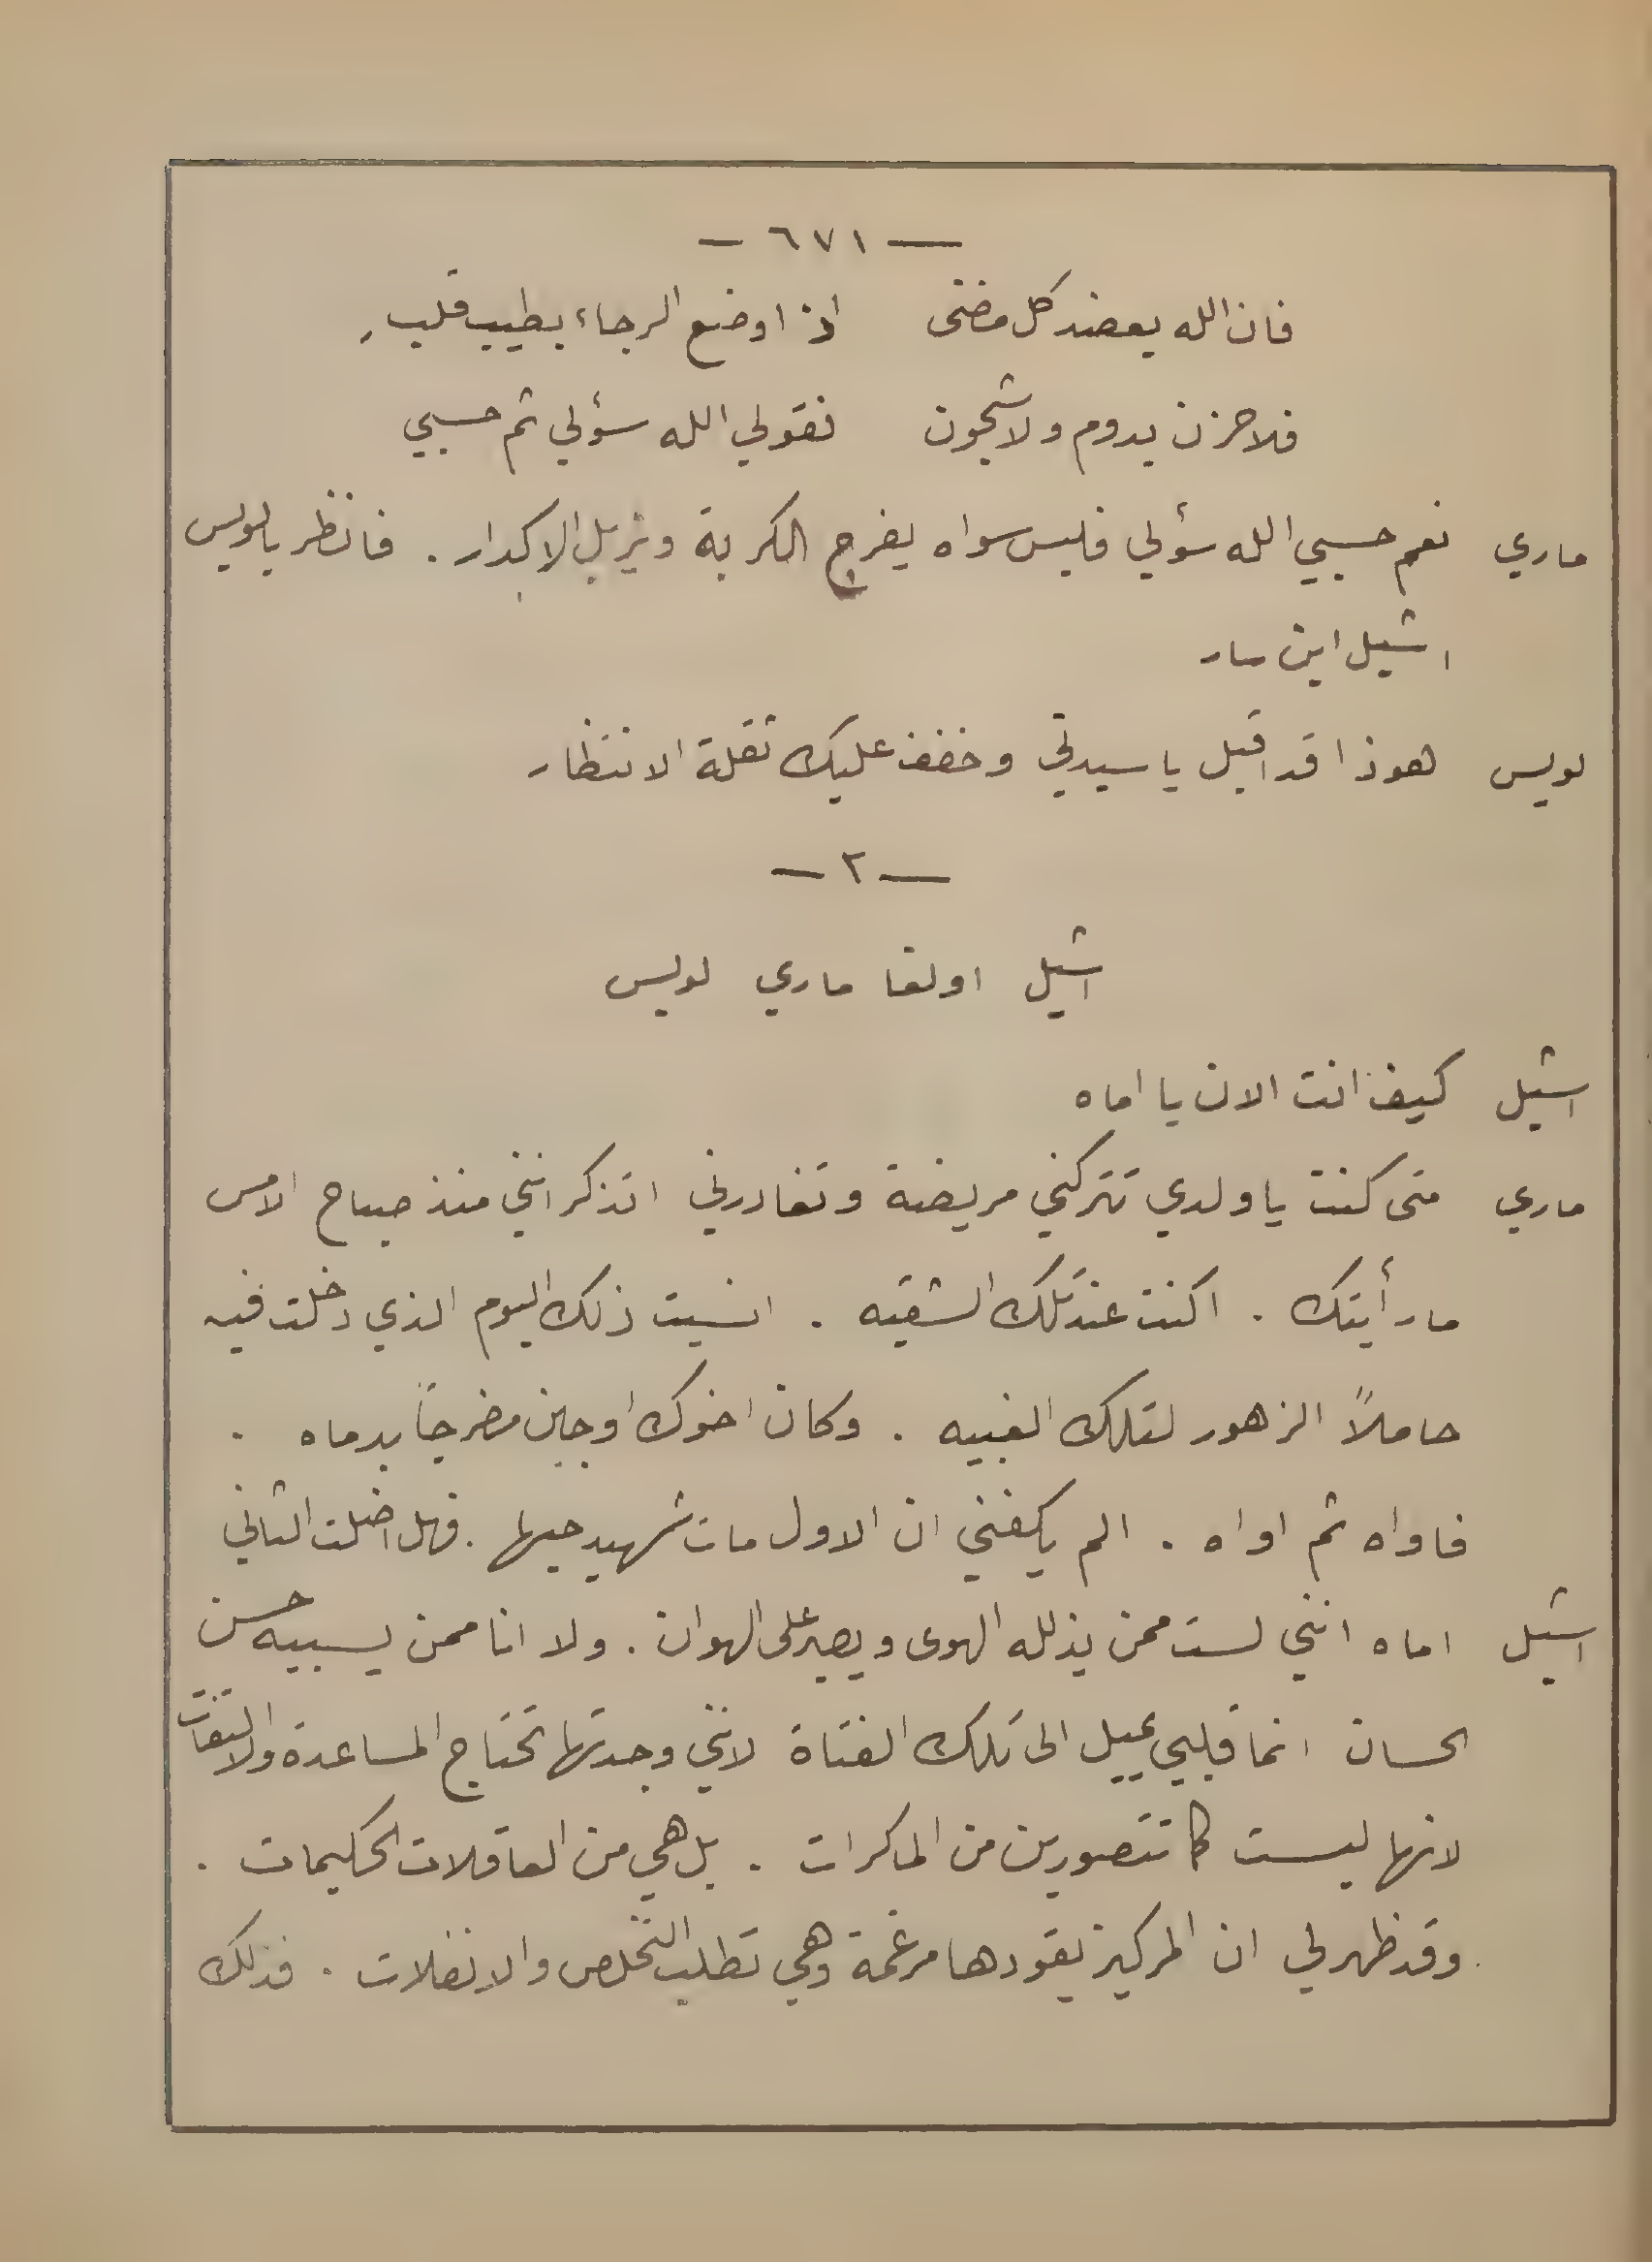 — ٦٧١ —
فان الله يعضد كل مضنى اذا وضع الرجاء بطيب قلب
فلا حزن يدوم ولا شجون فقولي الله سؤلي ثم حسبي
ماري نعم حسبي الله سؤلي فليس سواه يفرج الكربة ويزيل الاكدار . فانظر يا لويس
اشيل اين سار
لويس هوذا قد اقبل يا سيدتي وخفف عليك ثقلة الانتظار
— ٢ —
اشيل اولغا ماري لويس
اشيل كيف انت الان يا اماه
ماري متى كنت يا ولدي تتركني مريضة وتغادرني اتذكر انني منذ صباح الامس
ما رأيتك . اكنت عند تلك الشقيه . انسيت ذلك اليوم الذي دخلت فيه
حاملاً الزهور لتلك الغبيه . وكان اخوك اوجين مضرجاً بدماه .
فاواه ثم اواه . الم يكفني ان الاول مات شهيد حبها . فهل اضلت الثاني
اشيل اماه انني لست ممن يذلله الهوى ويصبر على الهوان . ولا انا ممن يسبيه حسن
الحسان انما قلبي يميل الى تلك الفتاة لانني وجدتها تحتاج المساعدة والالتفات
لانها ليست كما تتصورين من الماكرات . بل هي من العاقلات الحكيمات .
وقد ظهر لي ان المركيز يقودها مرغمة وهي تطلب التخلص والانفلات . فذلك